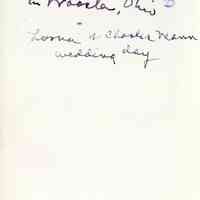 in Wooster, Ohio
"Lorna" & Charles Mann
wedding day